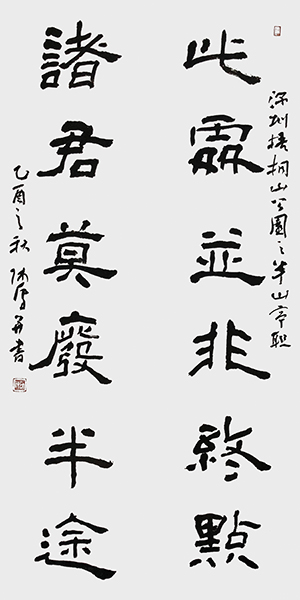 深圳梧桐山公園之半山亭聯
此處並非終點
諸君莫廢半途
乙酉之秋 并書